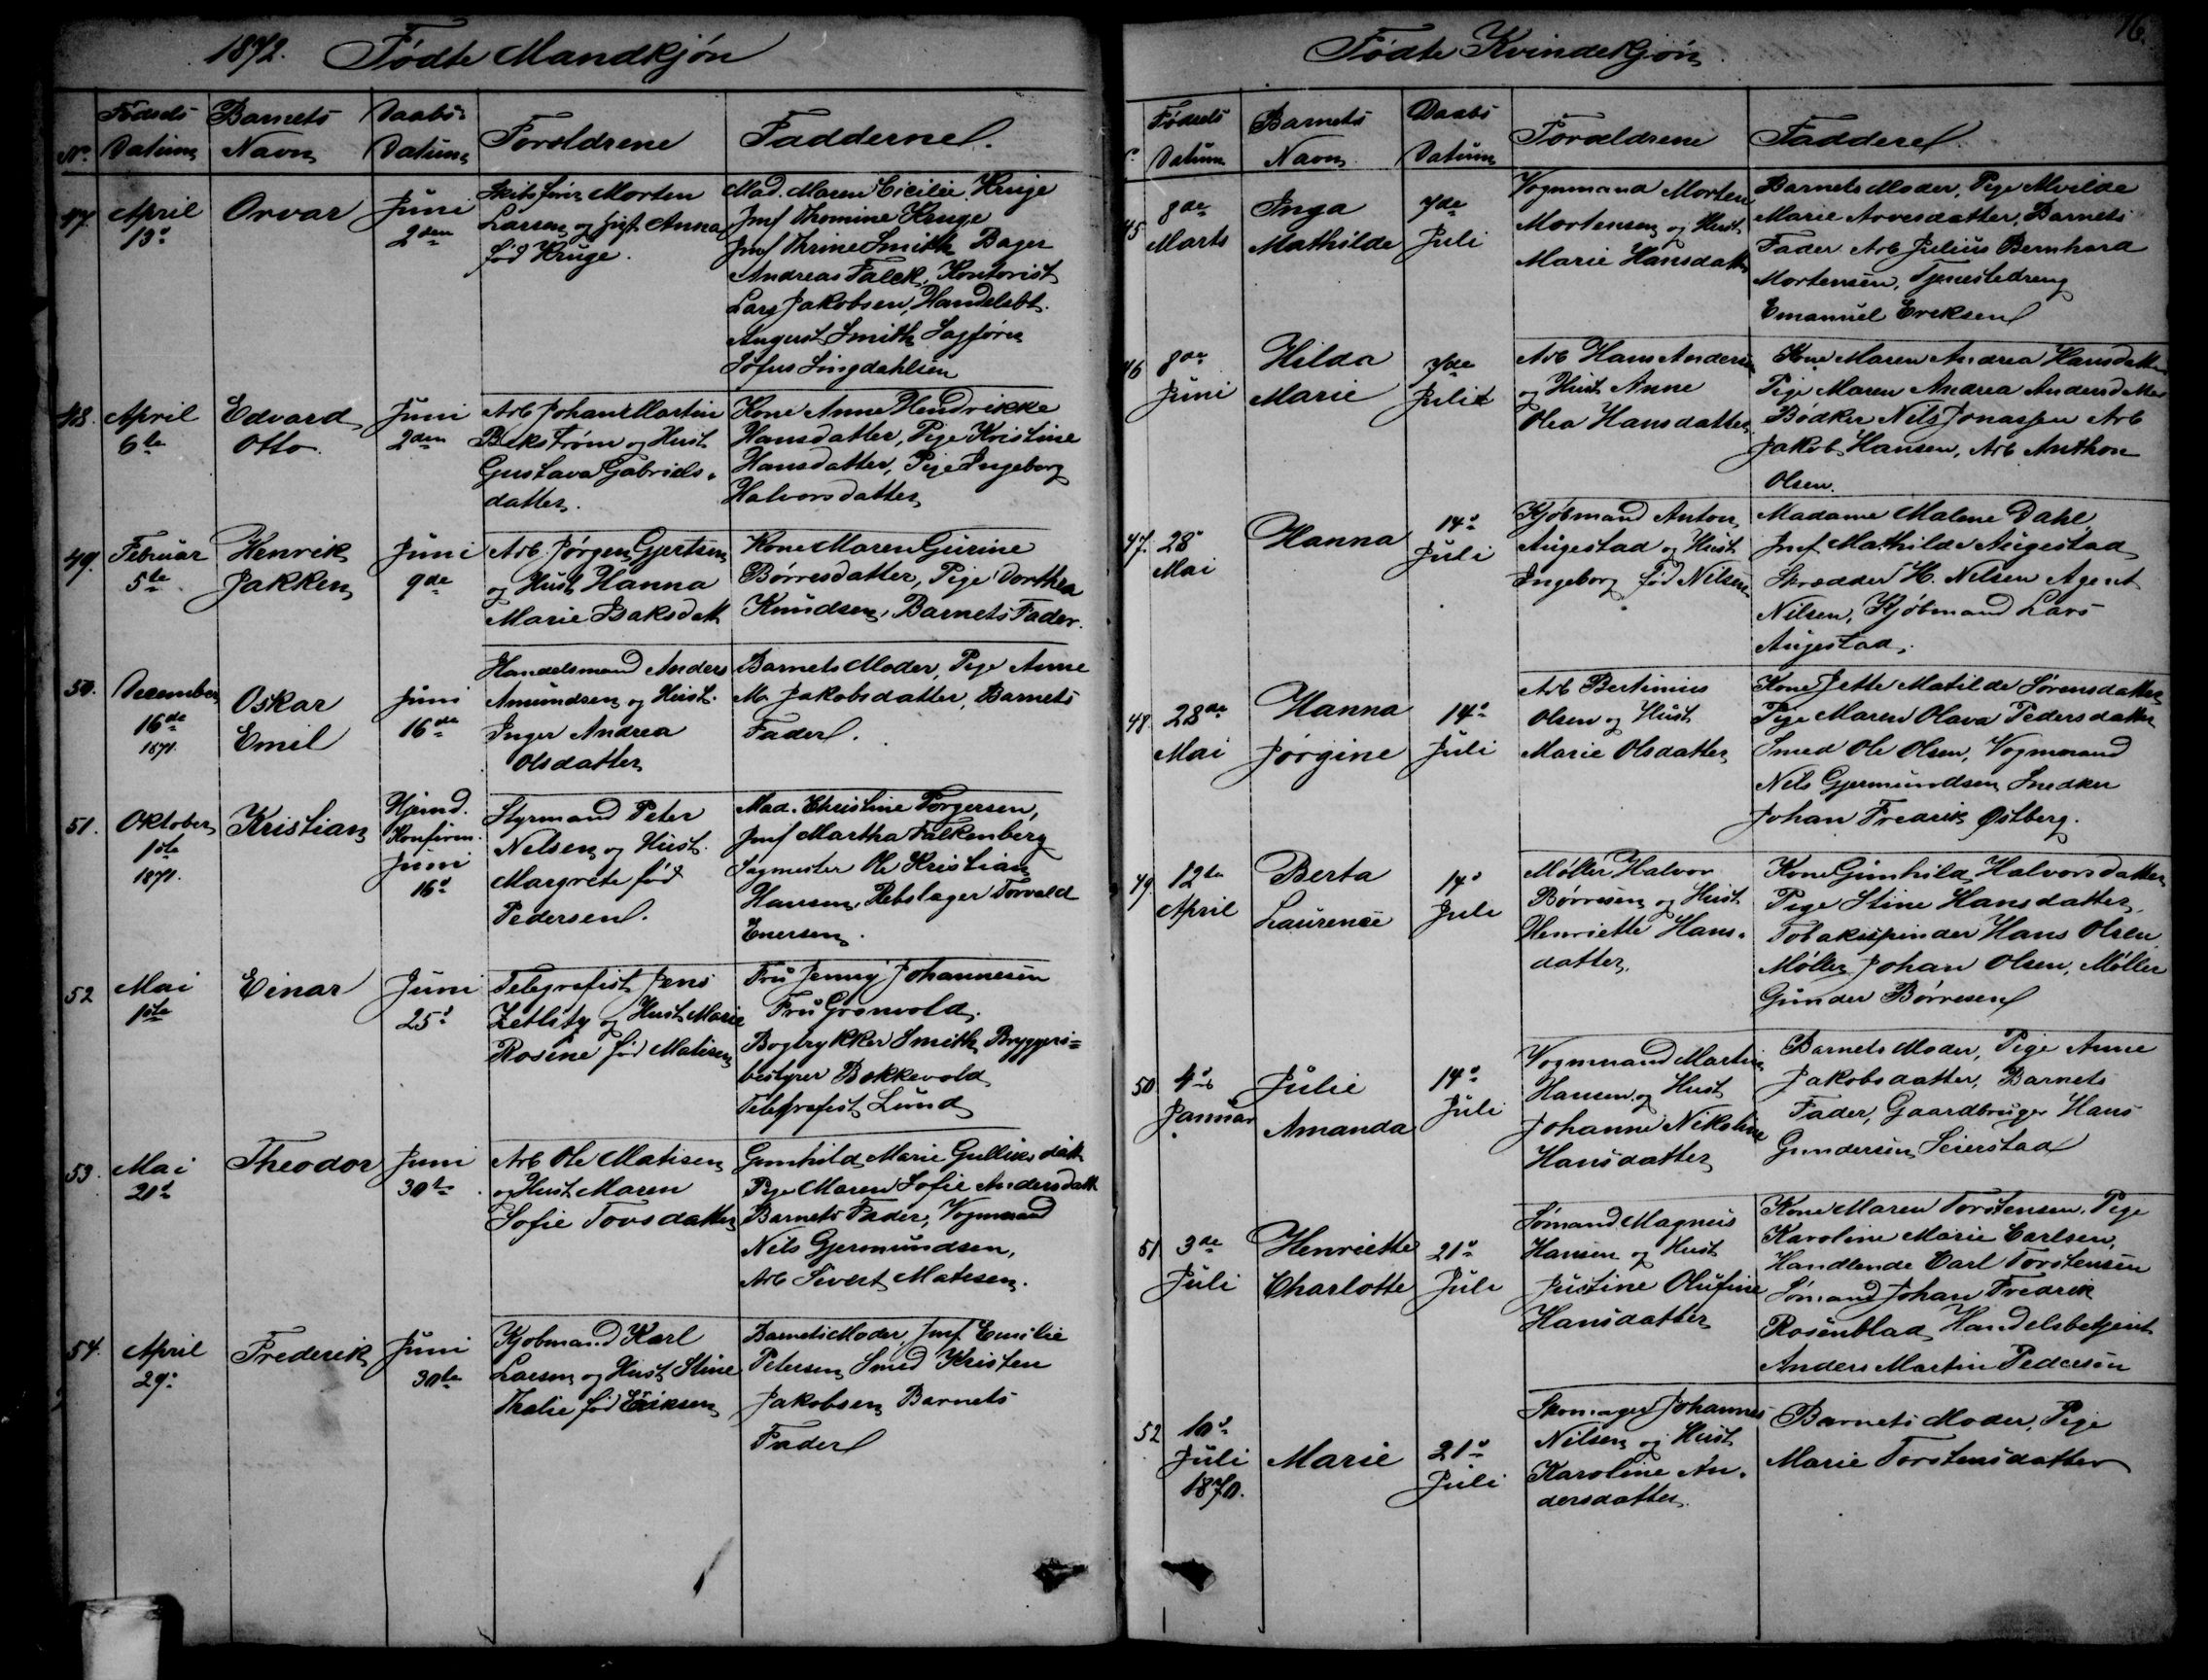 1872. Fødte Mandkjøn
No. Fødsels Datum Barnets Navn Daabs Datum Foreldrene Faddernel.
47. April 13d Orvar Juni 2den
Skibsfører Morten
Larsen og Hust Anna
fød Kruge.
Mad. Maren Cicilie Kruge
Jmf Thomine Kruge
Jmf Thrine Smith Bager
Andreas Falck, Kontorist
Lars Jakobsen, Handelsbt.
August Smith Sagfører
Sofus Lingdahlsen
48. April 6te Edvard Otto. Juni 2den
Arb Johan Martin
Bekstrøm og Hust
Gustava Gabriels-
datter.
Kone Anne Hendrikke
Hansdatter, Pige Kristine
Hansdatter, Pige Ingeborg
Halvorsdatter
49. Februar 5te Henrik Jakken Juni 9de
Arb. Jørgen Gjertsen
og Hust Hanna
Marie Isaksdatt
Kone Maren Gurine
Børresdatter, Pige Dorthea
Knudsen, Barnets Fader.
50. December 16de 1871. Oskar Emil Juni 16de
Handelsmand Anders
Amundsen og Hust.
Inger Andrea
Olsdatter
Barnets Moder, Pige Anne
M. Jakobsdatter, Barnets
Fader.
51. Oktober 1ste 1871. Kristian Hjemd. Konfirm. Juni 16d
Styrmand Peter
Nelsen og Hust.
Margrete fød
Pedersen.
Mad. Christine Torgersen,
Jmf Martha Falkenberg
Sagmester Ole Kristian
Hansen, Rebslager Torvald
Enersen.
52 Mai 1ste Einar Juni 25d
Telegrafist Jens
Zetlitz og Hust Marie
Rosine fød Matisen
Fru Jenny Johannesen
Fru Gronvold.
Bogtrykker Smith Bryggeri=
bestyrer Bokkevold
Telegrafist Lund
53. Mai 21d Theodor Juni 30te
Arb Ole Matisen
og Hust Maren
Sofie Torsdatter
Gunhild Marie Gulliksdatt
Pige Maren Sofie Andersdatt
Barnets Fader, Vognmand
Nils Gjermundsen,
Arb Sivert Matesen.
54. April 29d Frederik Juni 30te
Kjobmand Karl
Larsen og Hust Stine
Thalie fød Eriksen
Barnets Moder, Jmf. Emilie
Petersen Smed Kristen
Jakobsen Barnets
Fader
76.
Fødte Kvindekjøn
Fødsels Datum Barnets Navn Daabs Datum Foraldrene Faddere
45 8de Marts Inga Mathilde 7de Juli
Vognmand Morten
Mortensen og Hust
Marie Hansdatt
Barnets Moder, Pige Alvilde
Marie Arvesdatter, Barnets
Fader Arb Julius Bernhard
Mortensen, Tjenestedreng
Emanuel Ereksen
46 8de Juni Hilda Marie 7de Juli
Arb Hans Andersen
og Hust Anne
Olea Hansdatter
Kone Maren Andrea Hansdatter
Pige Maren Andrea Andersdatter
Bødker Nils Jonassen Arb
Jakob Hansen, Arb Anthon
Olsen.
47. 28d Mai Hanna 14d Juli
Kjøbmand Anton
Augestad og Hust
Ingeborg fød Nilsen
Madame Malene Dahl
Jmf. Mathilde Augestad
Skrædder H. Nilsen Agent
Nilsen, Kjøbmand Lars
Augestad.
48. 28de Mai Hanna Jørgine 14d Juli
Arb Bertinius
Olsen og Hust
Marie Olsdatter
Kone Jette Matilde Sørensdatter
Pige Maren Olava Pedersdatter
Smed Ole Olsen, Vognmand
Nils Gjermundsen Snedker
Johan Fredrik Østberg.
49. 12te April Berta Laurence 14d Juli
Møller Halvor
Børresen og Hust
Henriette Hans-
datter.
Kone Gunhild Halvorsdatter
Pige Stine Hansdatter
Tobakspinder Hans Olsen
Møller Johan Olsen, Møller
Gunder Børresen
50 4d Januar Julie Amanda 14d Juli
Vognmand Martin
Hansen og Hust
Johanne Nikoline
Hansdatter
Barnets Moder, Pige Anne
Jakobsdatter, Barnets
Fader, Gaardbruger Hans
Gundersen Seierstad
51 3de Juli Henriette Charlotte 21d Juli
Sømand Magnus
Hansen og Hust
Justine Olufine
Hansdatter
Kone Maren Torstensen, Pige
Karoline Marie Carlsen,
Handlende Carl Torstensen
Sømand Johan Fredrik
Rosenblad Handelsbetjent
Anders Martin Pedersen
52 10d Juli 1870. Marie 21d Juli
Skomager Johannes
Nilsen og Hust
Karoline An-
dersdatter.
Barnets Moder, Pige
Marie Torstensdatter